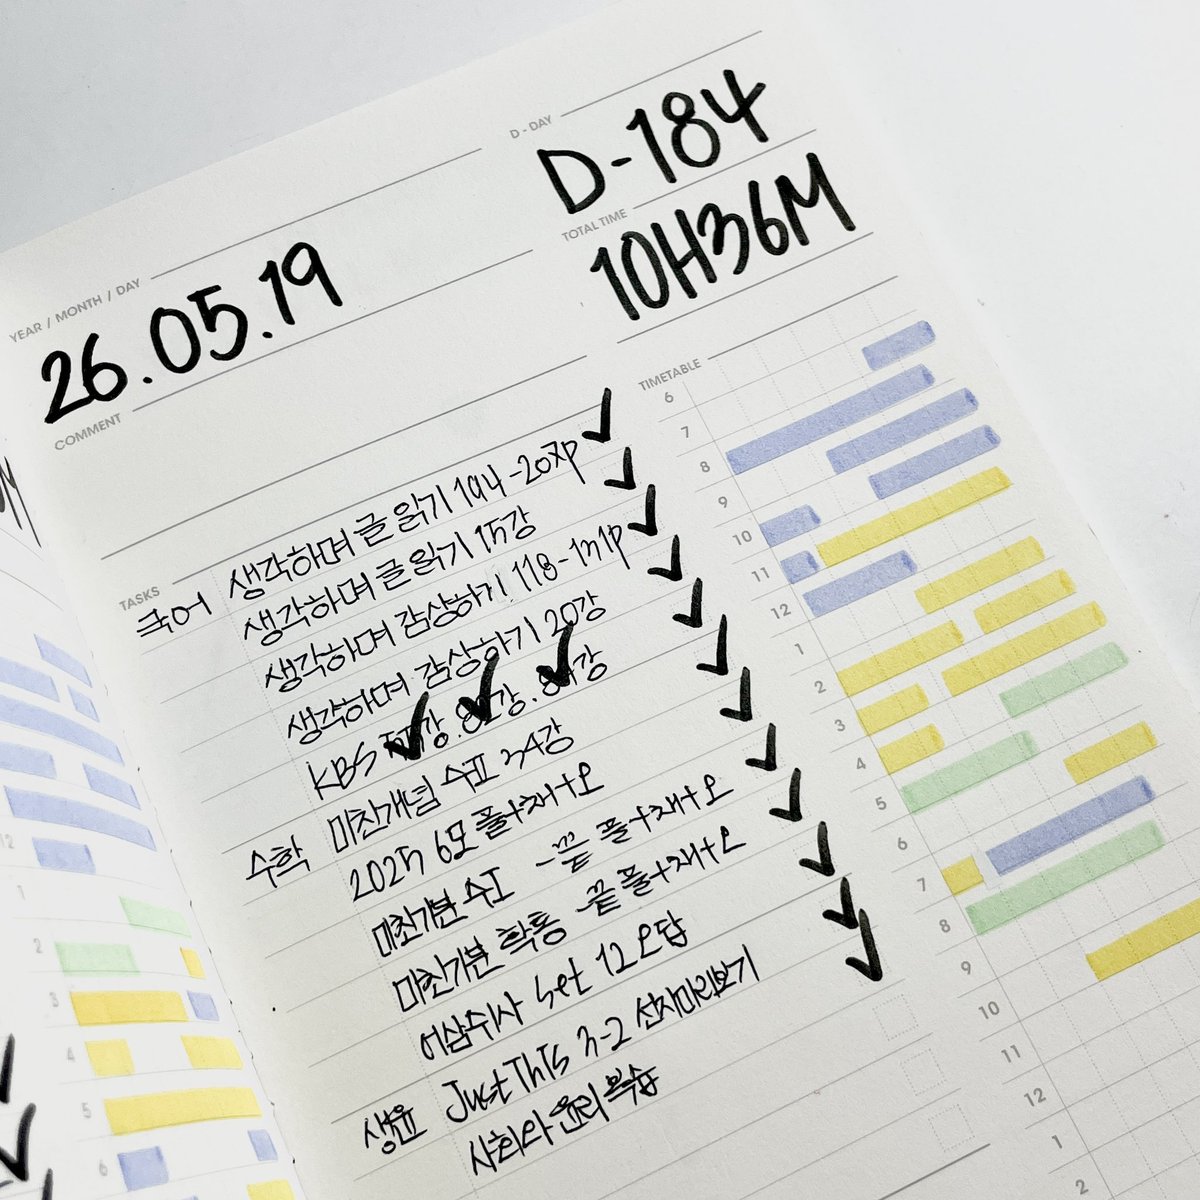 D-DAY
D-184
TOTAL TIME
10H36M
YEAR / MONTH / DAY
26.05.19
COMMENT
TASKS
국어 생각하며 글 읽기 194-207p
생각하며 글 읽기 15강
생각하며 감상하기 118-131p
생각하며 감상하기 20강
KBS 강. 강. 강
수학 미친개념 수Ⅱ 34강
2025 6모 풀+채+오
미친기분 수Ⅰ -끝 풀+채+오
미친기분 확통 -끝 풀+채+오
어삼쉬사 set 12 오답
생윤 Just This 3-2 선지미리보기
사회와 윤리 복습
TIMETABLE
6
7
8
9
10
11
12
1
2
3
4
5
6
7
8
9
10
11
12
1
2
12
1
2
3
4
5
6